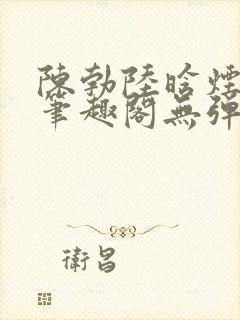 陳勃陸晗煙
筆趣閣無彈
衛昌